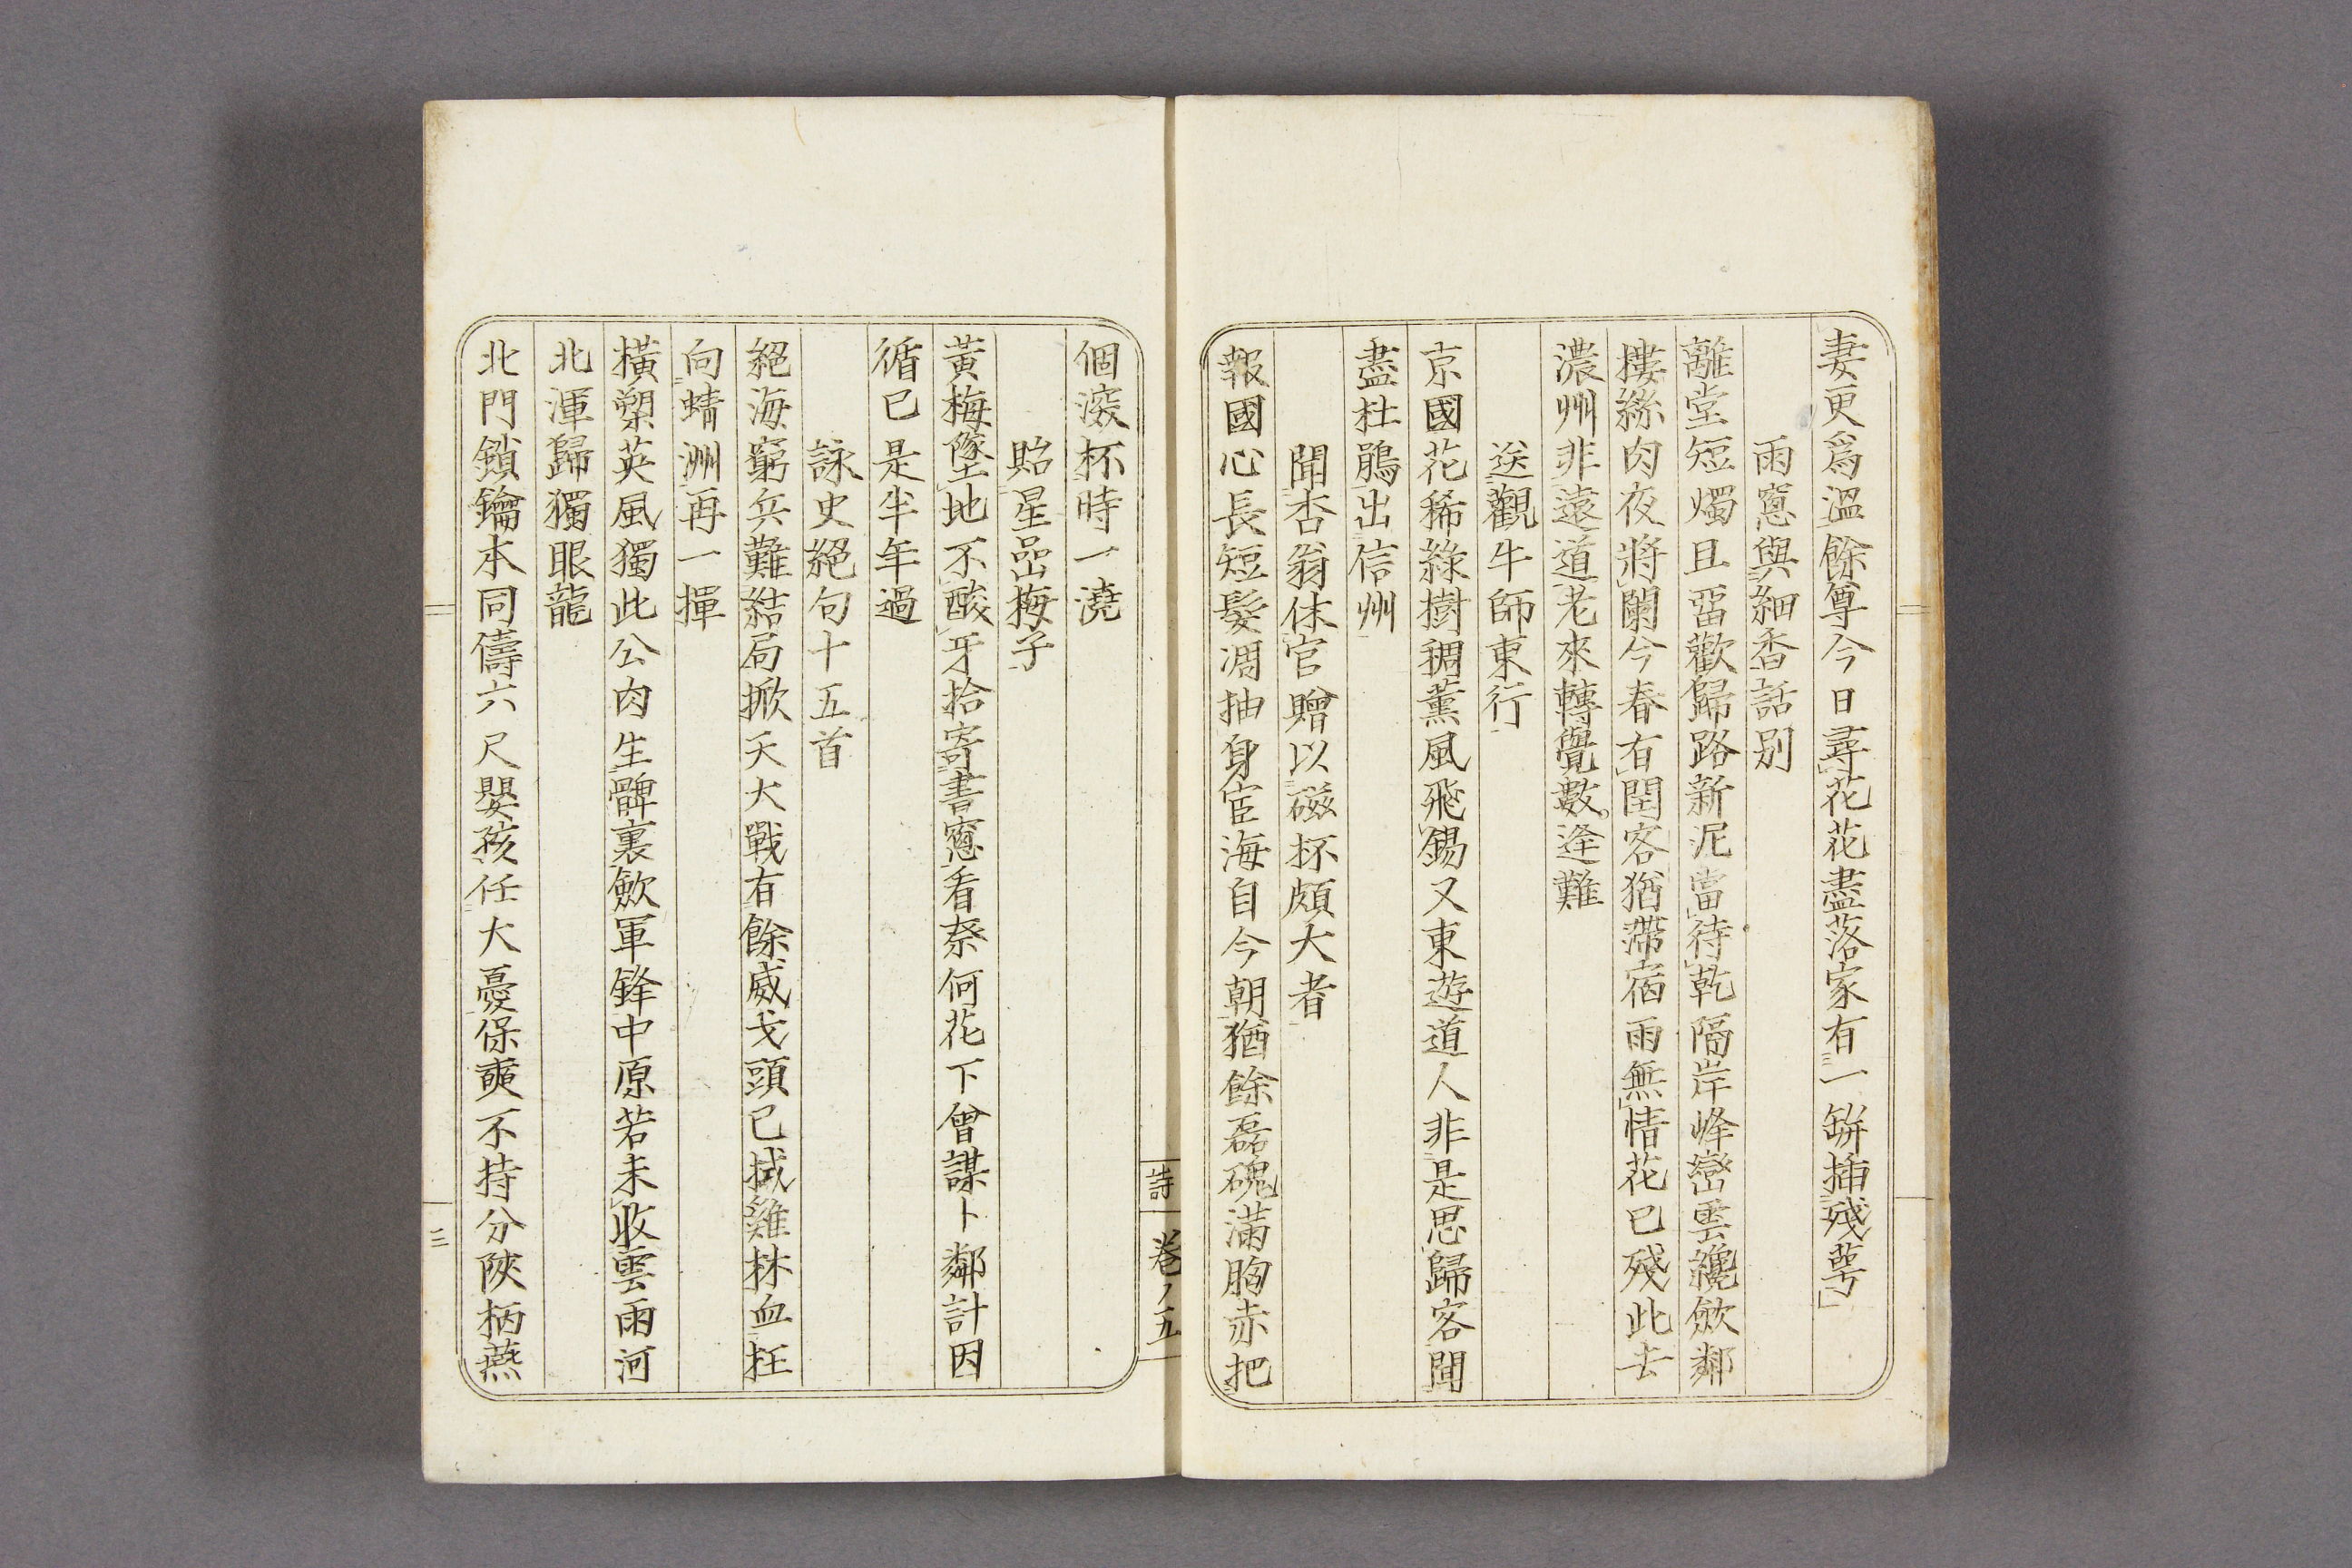 妻更爲溫餘尊今日尋花花盡落家有一缾插殘蕚
雨窻與細香話別
離堂短燭且畱歡歸路新泥當待乾隔岸峰巒雲纔斂鄰
摟絲肉夜將闌今春有閏客猶滯宿雨無情花已殘此去
濃州非遠道老來轉覺數逢難
送觀牛師東行
京國花稀綠樹稠薰風飛錫又東遊道人非是思歸客聞
盡杜鵑出信州
聞杏翁休官贈以磁杯頗大者
報國心長短髮凋抽身宦海自今朝猶餘磊磈滿胸赤把
個深杯時一澆
貽星喦梅子
黃梅墜地不酸牙拾寄書窻看奈何花下曾謀卜鄰計因
循已是半年過
詠史絕句十五首
絕海窮兵難結局掀天大戰有餘威戈頭已拭雞林血枉
向蜻洲再一揮
橫槊英風獨此公肉生髀裏斂軍鋒中原若未收雲雨河
北渾歸獨眼龍
北門鎖鑰本同儔六尺嬰孩任大憂保奭不持分陝柄燕
詩 卷ノ五
三